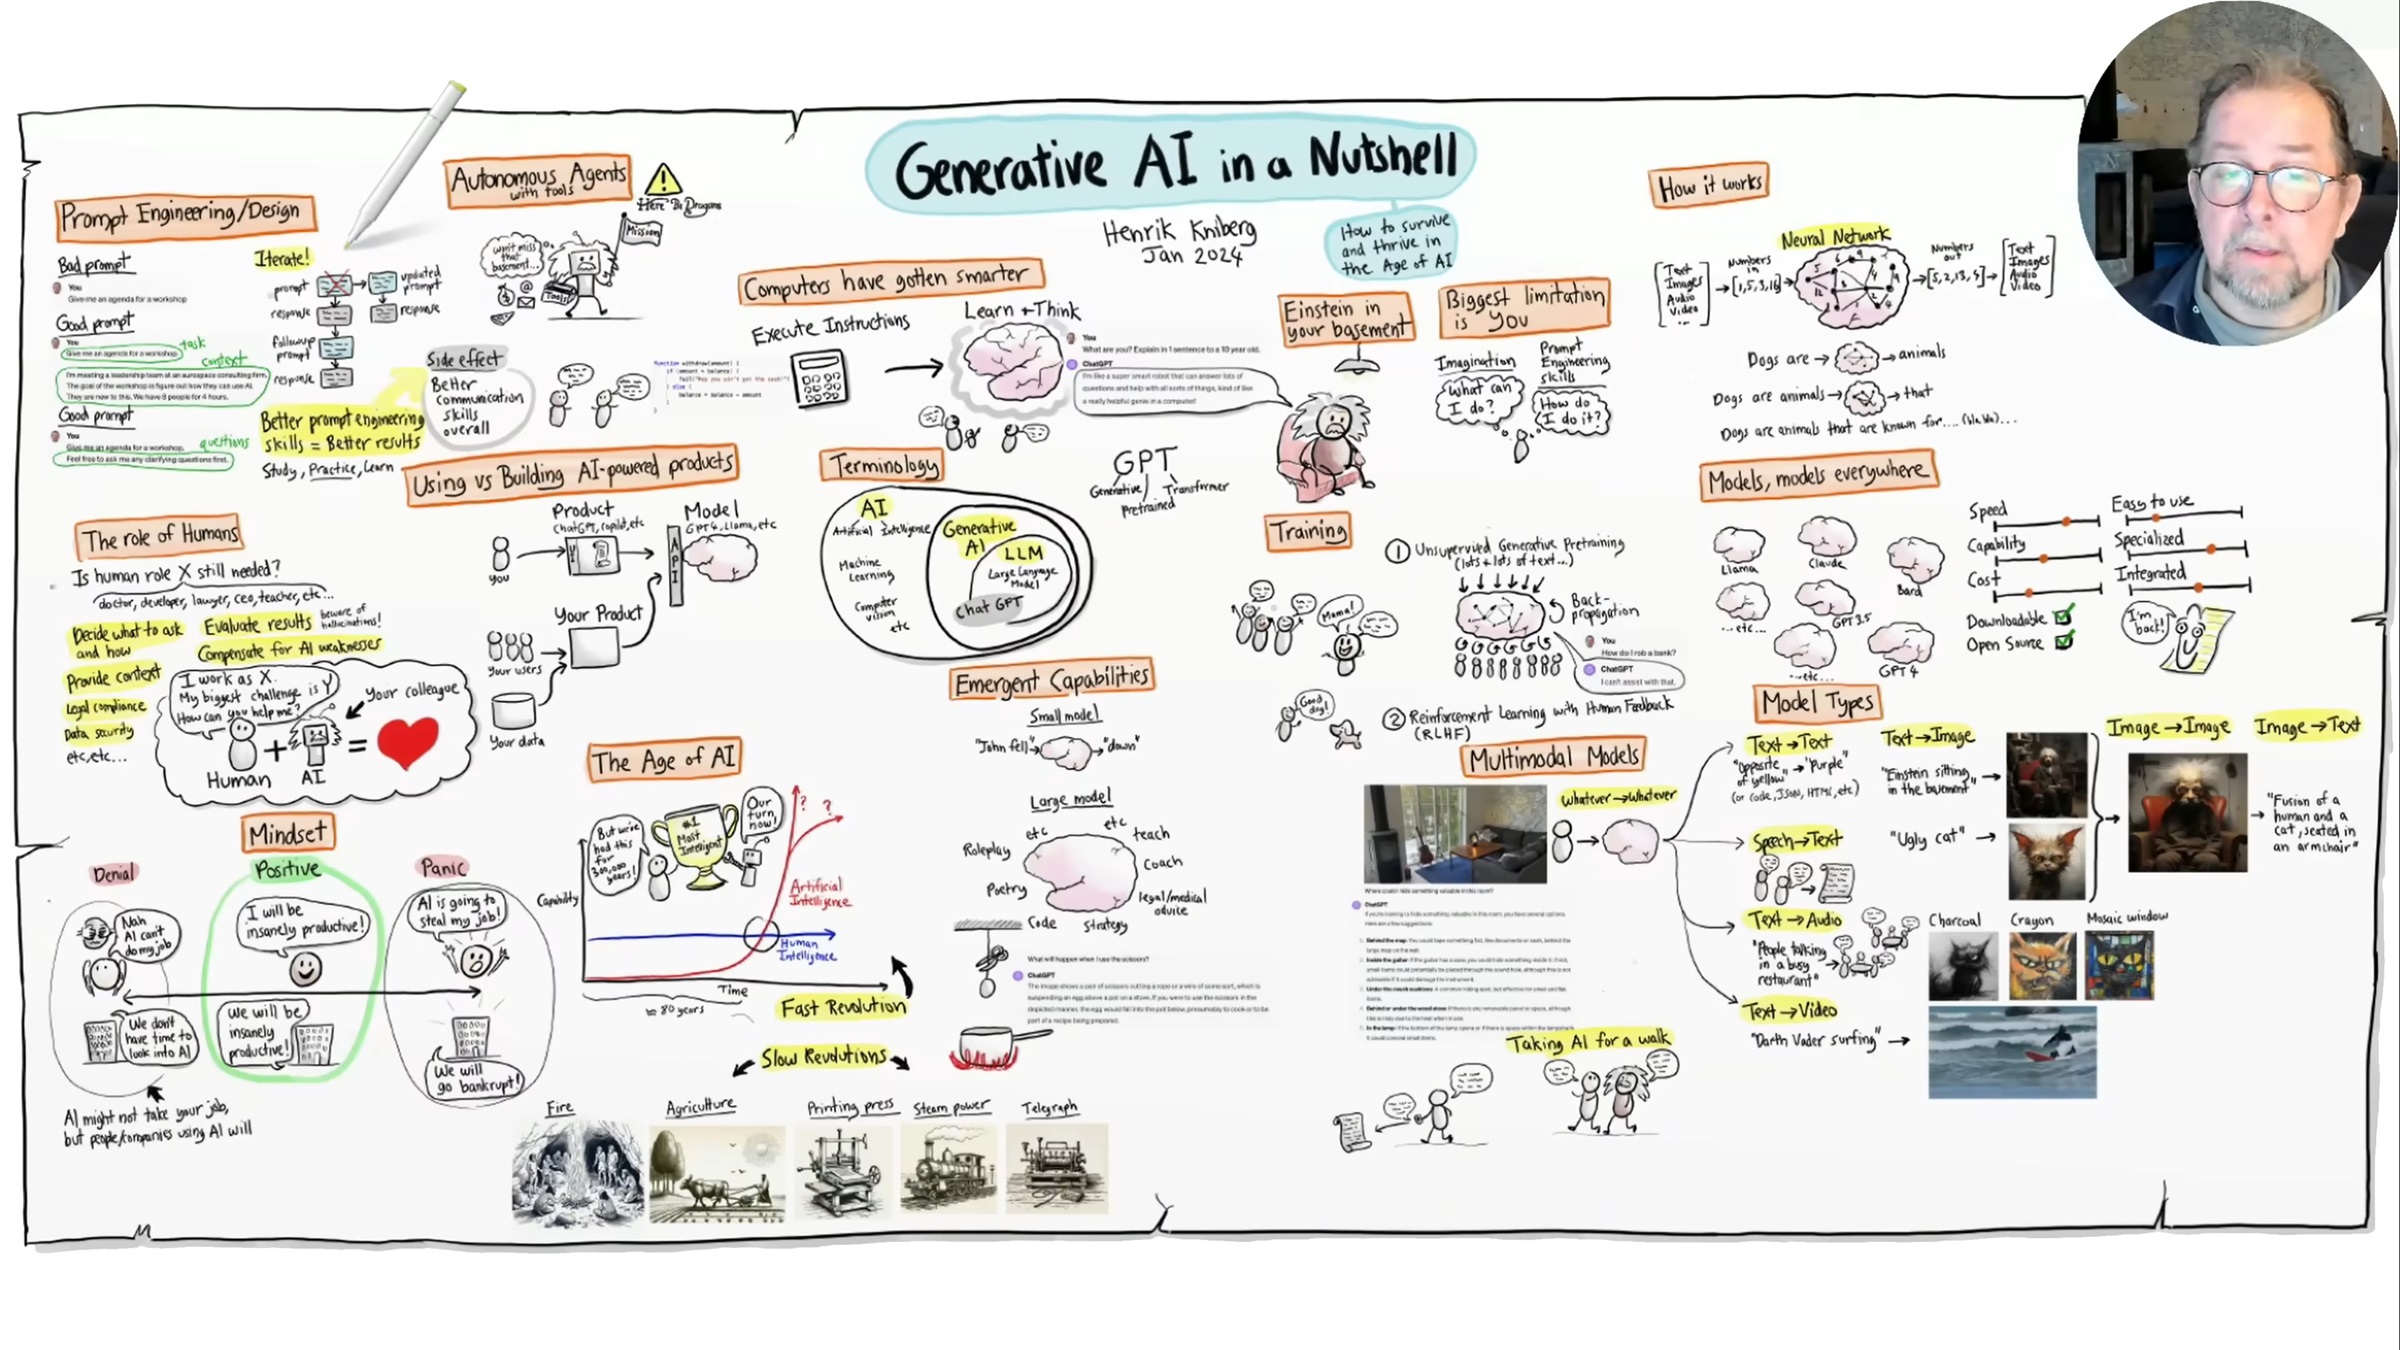 Generative AI in a Nutshell
Henrik Kniberg
Jan 2024
How to survive
and thrive in
the Age of AI
Prompt Engineering/Design
Bad prompt
You
Give me an agenda for a workshop
Good prompt
You
Give me an agenda for a workshop.
task
context
I'm meeting a leadership team at an aerospace consulting firm.
The goal of the workshop is figure out how they can use AI.
They are new to this. We have 8 people for 4 hours.
Good prompt
You
questions
Give me an agenda for a workshop.
Feel free to ask me any clarifying questions first.
Iterate!
prompt
updated
prompt
response
response
followup
prompt
response
Better prompt engineering
skills = Better results
Study, Practice, Learn
Side effect
Better
communication
skills
overall
Autonomous Agents
with tools
Here Be Dragons
Mission
won't miss
that
basement...
@
Tools
function withdraw(amount) {
if (amount > balance) {
} else {
balance = balance - amount
}
}
Computers have gotten smarter
Execute Instructions
Learn + Think
You
What are you? Explain in 1 sentence to a 10 year old.
ChatGPT
I'm like a super smart robot that can answer lots of
questions and help with all sorts of things, kind of like
a really helpful genie in a computer!
Einstein in
your basement
Biggest limitation
is You
Imagination
What can
I do?
Prompt
Engineering
skills
How do
I do it?
How it works
Neural Network
Text
Images
Audio
Video
...
Numbers
in
[1,5,3,16]
Numbers
out
[5,2,13,4]
Text
Images
Audio
Video
Dogs are
animals
Dogs are animals
that
Dogs are animals that are known for.... (bla bla)...
Using vs Building AI-powered products
Product
ChatGPT, copilot, etc
Model
GPT4, Llama, etc
You
UI
API
Your Product
Your users
Your data
Terminology
AI
Artificial Intelligence
Machine
Learning
Computer
vision
etc
Generative
AI
LLM
Large Language
Model
Chat GPT
GPT
Generative
Pretrained
Transformer
Training
1 Unsupervied Generative Pretraining
(lots & lots of text...)
Back-
propagation
Mama!
You
How do I rob a bank?
ChatGPT
I can't assist with that.
Good
dog!
2 Reinforcement Learning with Human Feedback
(RLHF)
Models, models everywhere
Llama
Claude
Bard
...etc...
GPT 3.5
...etc...
GPT 4
Speed
Capability
Cost
Downloadable
Open Source
Easy to use
Specialized
Integrated
I'm
back!
The role of Humans
Is human role X still needed?
doctor, developer, lawyer, ceo, teacher, etc...
Decide what to ask
and how
Evaluate results
beware of
hallucinations!
Compensate for AI weaknesses
Provide context
Legal compliance
Data security
etc, etc...
I work as X.
My biggest challenge is Y
How can you help me?
Your colleague
Human
+
AI
=
Emergent Capabilities
Small model
"John fell"
"down"
Large model
etc
etc
teach
Roleplay
coach
Poetry
legal/medical
advice
Code
strategy
What will happen when I use the scissors?
ChatGPT
The image shows a pair of scissors cutting a rope or a wire of some sort, which is
suspending an egg above a pot on a stove. If you were to use the scissors in the
depicted manner, the egg would fall into the pot below, presumably to cook or to be
part of a recipe being prepared.
The Age of AI
But we've
had this
for
300,000
years!
#1
Most
Intelligent
Our
turn,
now!
?
?
Capability
Artificial
Intelligence
Human
Intelligence
Time
≈ 80 years
Fast Revolution
Slow Revolutions
Fire
Agriculture
Printing press
Steam power
Telegraph
Mindset
Denial
Positive
Panic
Nah
AI can't
do my job
I will be
insanely productive!
AI is going to
steal my job!
We don't
have time to
look into AI
We will be
insanely
productive!
We will
go bankrupt!
AI might not take your job,
but people/companies using AI will
Multimodal Models
Whatever→Whatever
ChatGPT
Taking AI for a walk
Model Types
Text→Text
"Opposite
of yellow"
"Purple"
(or code, JSON, HTML, etc)
Text→Image
"Einstein sitting
in the basement"
"Ugly cat"
Image→Image
Image→Text
"Fusion of a
human and a
cat, seated in
an armchair"
Speech→Text
Text→Audio
"People talking
in a busy
restaurant"
Charcoal
Crayon
Mosaic window
Text→Video
"Darth Vader surfing"